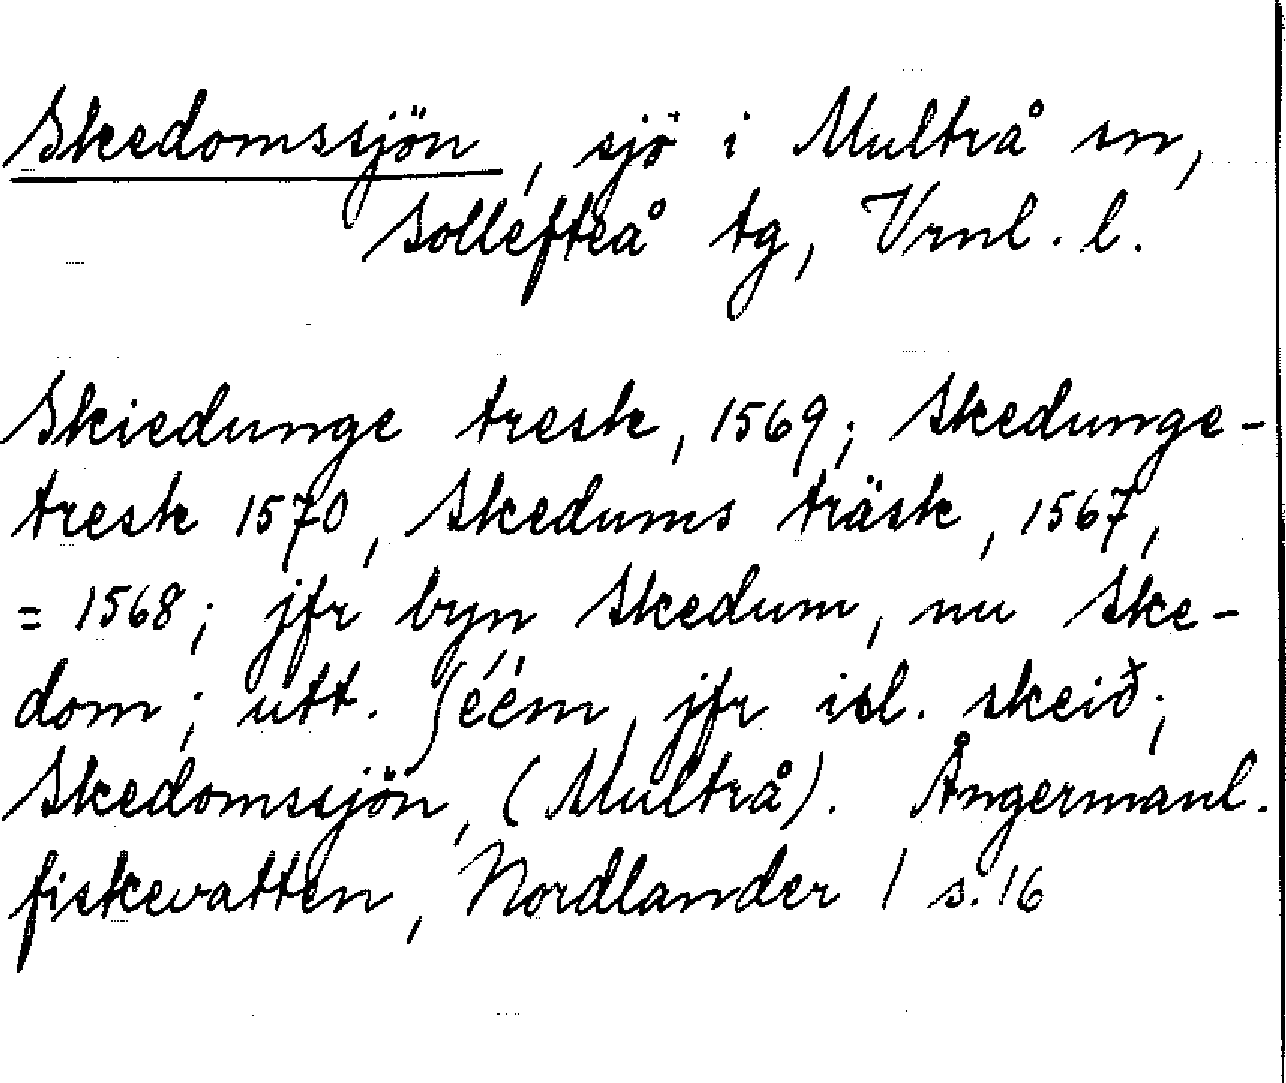 Skedomssjön, sjö i Multrå sn,
Sollefteå tg, Vrnl. l.
Skiedunge tresk, 1569; Skedunge-
tresk 1570, Skedums träsk, 1567,
= 1568; jfr byn Skedum, nu Ske-
dom; utt. ʃéém, jfr isl. skeið;
Skedomssjön, (Multrå). Ångermanl.
fiskevatten, Nordlander 1 s. 16